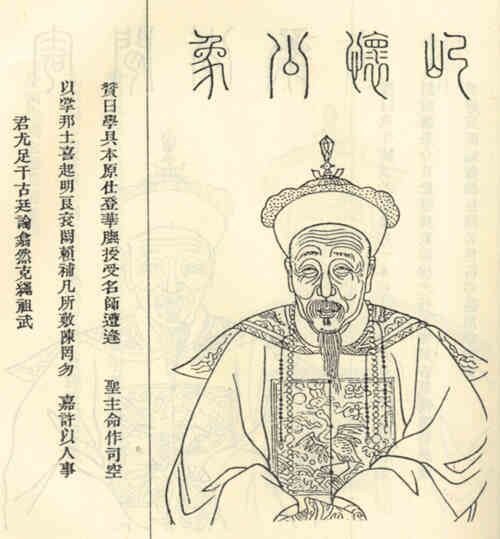 屺懷公象
贊曰學具本原仕登華膴授受名師遭逢 聖主命作司空
以掌邦土喜起明良袞闕賴補凡所敷陳罔勿 嘉許以人事
君尤足千古廷論僉然克繩祖武